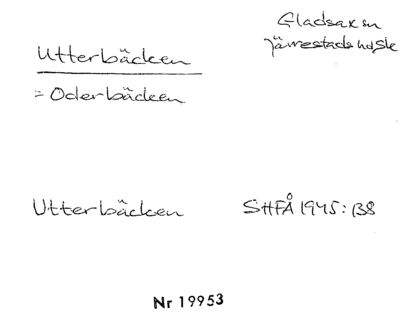 Utterbäcken
Gladsax sn
Järrestads hd, Sk
= Oderbäcken
Utterbäcken SHFÅ 1945: 138
Nr 19953